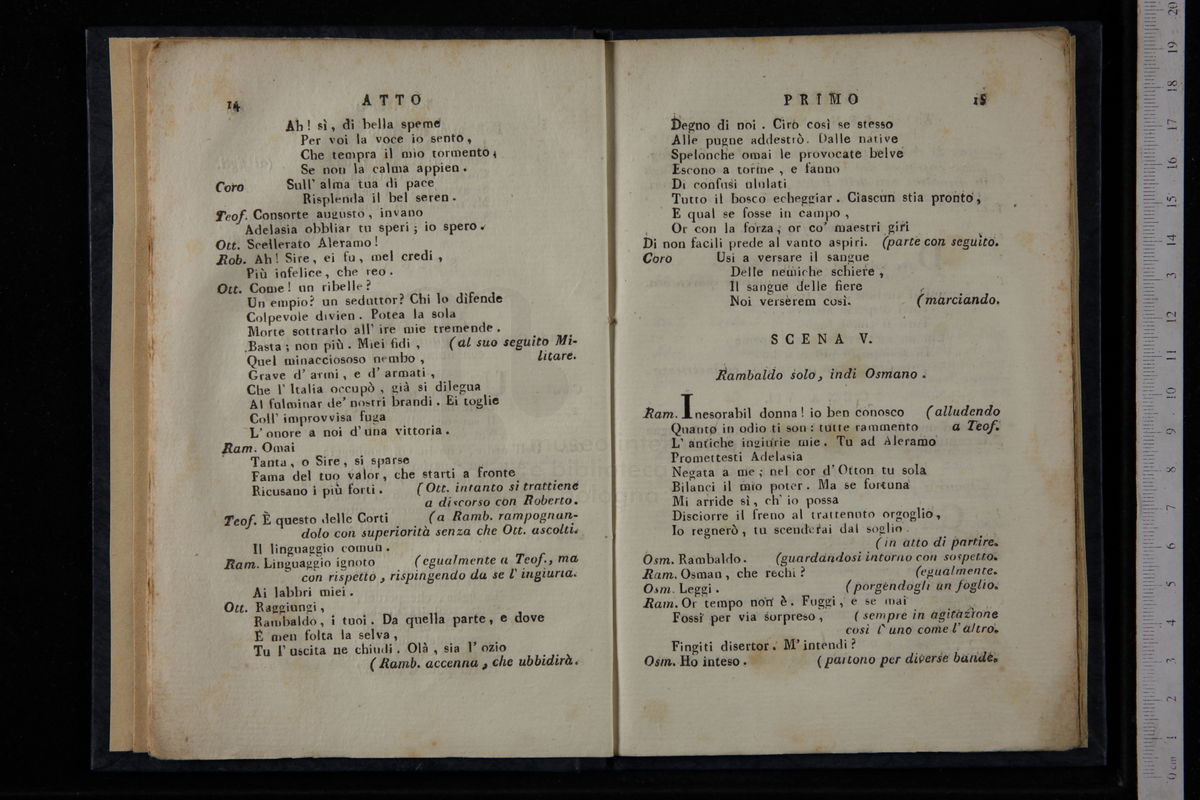 14 ATTO
Ah! sì, di bella speme
Per voi la voce io sento,
Che tempra il mio tormento,
Se non la calma appien.
Coro Sull' alma tua di pace
Risplenda il bel seren.
Teof. Consorte augusto, invano
Adelasia obbliar tu speri; io spero.
Ott. Scellerato Aleramo!
Rob. Ah! Sire, ei fu, mel credi,
Più infelice, che reo.
Ott. Come! un ribelle?
Un empio? un seduttor? Chi lo difende
Colpevole divien. Potea la sola
Morte sottrarlo all' ire mie tremende.
Basta; non più. Miei fidi, (al suo seguito Mi-
Quel minacciososo nembo, litare.
Grave d' armi, e d' armati,
Che l' Italia occupò, già si dilegua
Al fulminar de' nostri brandi. Ei toglie
Coll' improvvisa fuga
L' onore a noi d' una vittoria.
Ram. Omai
Tanta, o Sire, si sparse
Fama del tuo valor, che starti a fronte
Ricusano i più forti. (Ott. intanto si trattiene
a discorso con Roberto.
Teof. È questo delle Corti (a Ramb. rampognan-
dolo con superiorità senza che Ott. ascolti.
Il linguaggio comun.
Ram. Linguaggio ignoto (egualmente a Teof., ma
con rispetto, rispingendo da se l' ingiuria.
Ai labbri miei.
Ott. Raggiungi,
Rambaldo, i tuoi. Da quella parte, e dove
È men folta la selva,
Tu l' uscita ne chiudi. Olà, sia l' ozio
(Ramb. accenna, che ubbidirà.
PRIMO 15
Degno di noi. Ciro così se stesso
Alle pugne addestrò. Dalle native
Spelonche omai le provocate belve
Escono a torme, e fanno
Di confusi ululati
Tutto il bosco echeggiar. Ciascun stia pronto,
E qual se fosse in campo,
Or con la forza, or co' maestri giri
Di non facili prede al vanto aspiri. (parte con seguito.
Coro Usi a versare il sangue
Delle nemiche schiere,
Il sangue delle fiere
Noi verserem così. (marciando.
SCENA V.
Rambaldo solo, indi Osmano.
Ram. Inesorabil donna! io ben conosco (alludendo
Quanto in odio ti son: tutte rammento a Teof.
L' antiche ingiurie mie. Tu ad Aleramo
Promettesti Adelasia
Negata a me; nel cor d' Otton tu sola
Bilanci il mio poter. Ma se fortuna
Mi arride sì, ch' io possa
Disciorre il freno al trattenuto orgoglio,
Io regnerò, tu scenderai dal soglio.
(in atto di partire.
Osm. Rambaldo. (guardandosi intorno con sospetto.
Ram. Osman, che rechi? (egualmente.
Osm. Leggi. (porgendogli un foglio.
Ram. Or tempo non è. Fuggi, e se mai
Fossi per via sorpreso, (sempre in agitazione
così l' uno come l' altro.
Fingiti disertor. M' intendi?
Osm. Ho inteso. (partono per diverse bande.